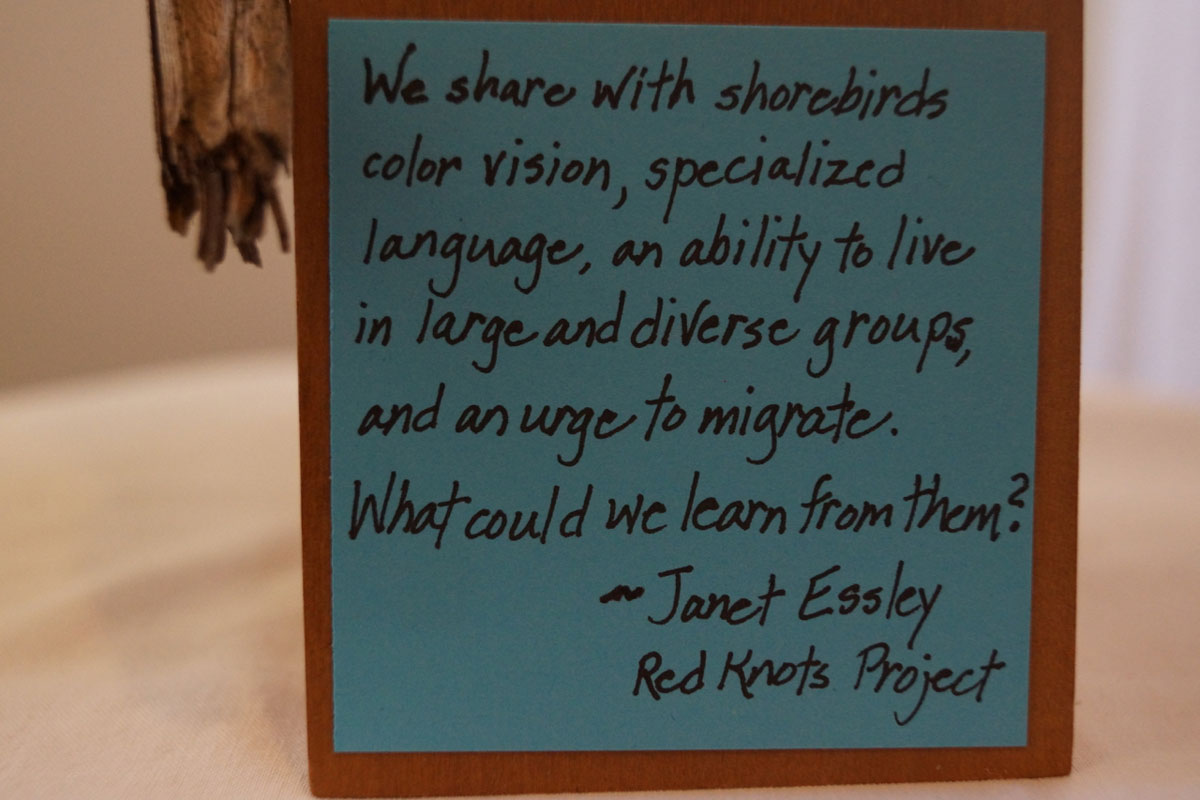 We share with shorebirds
color vision, specialized
language, an ability to live
in large and diverse groups,
and an urge to migrate.
What could we learn from them?
~ Janet Essley
Red Knots Project